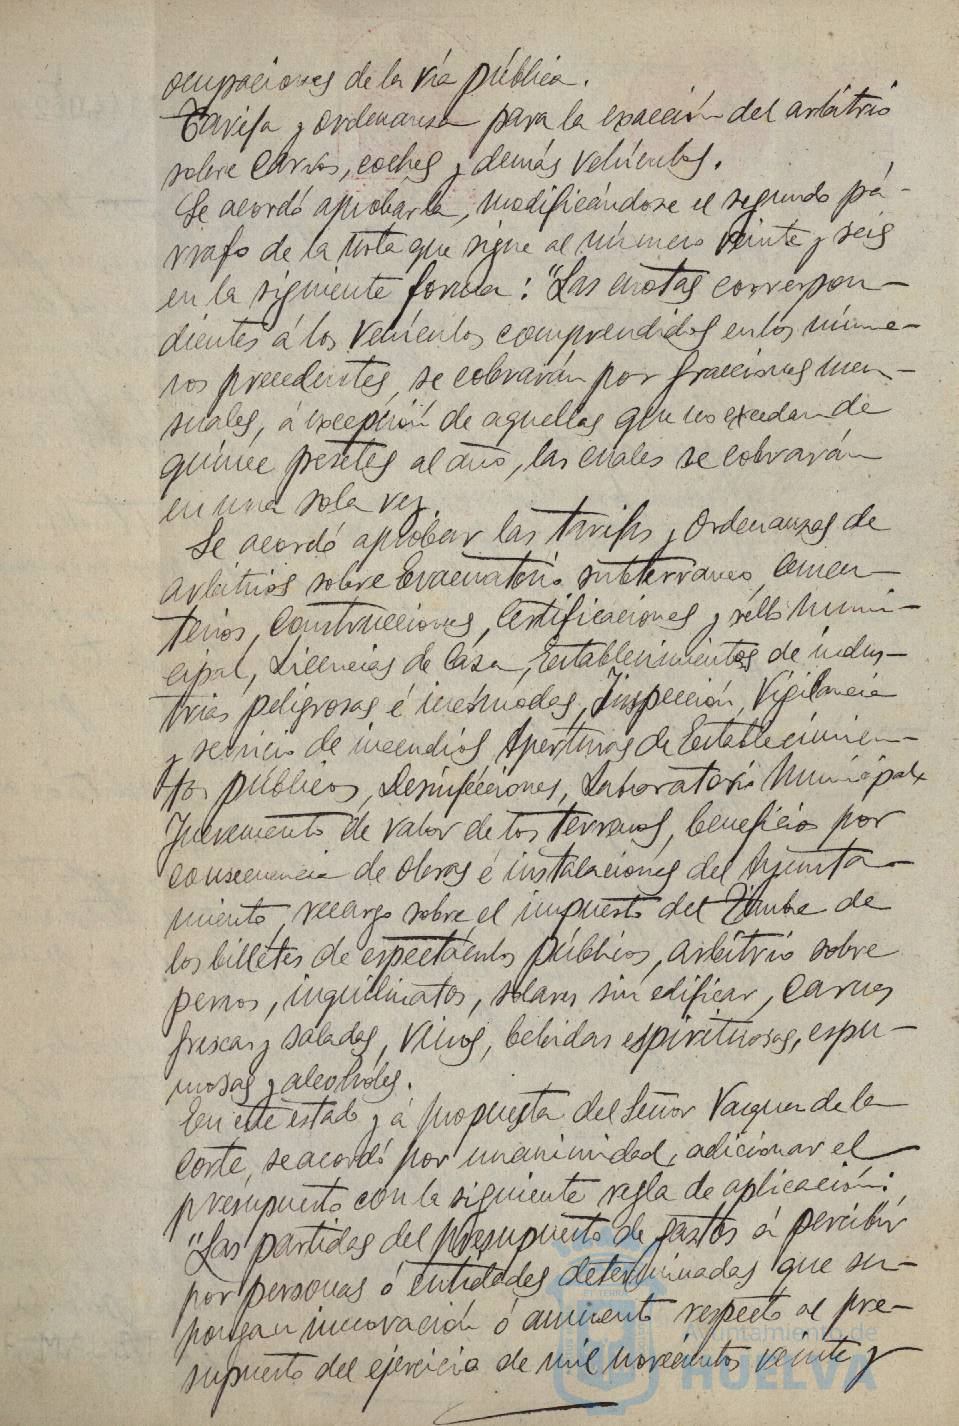 ocupaciones de la vía pública.
Tarifa y ordenanza para la exacción del arbitrio
sobre carros, coches y demás vehículos.
Se acordó aprobarla, modificándose el segundo pá-
rrafo de la nota que sigue al número veinte y seis
en la siguiente forma: "Las cuotas correspon-
dientes á los vehículos comprendidos en los núme-
ros precedentes, se cobrarán por fracciones men-
suales, á excepción de aquellas que no excedan de
quince pesetas al año, las cuales se cobrarán
en una sola vez.
Se acordó aprobar las tarifas y Ordenanzas de
arbitrios sobre Evacuatorio subterraneo, Cemen-
terios, Construcciones, Certificaciones y sello muni-
cipal, Licencias de Caza, Establecimientos de indus-
trias peligrosas é incómodas, Inspección, Vigilancia
y servicio de incendios, Aperturas de Establecimien-
tos públicos, Desinfecciones, Laboratorio Municipal,
Incremento de valor de los terrenos, beneficios por
consecuencia de obras é instalaciones del Ayunta-
miento, recargo sobre el impuesto del Timbre de
los billetes de espectáculos públicos, arbitrio sobre
perros, inquilinatos, solares sin edificar, carnes
frescas y saladas, vinos, bebidas espirituosas, espu-
mosas y alcoholes.
En este estado y á propuesta del Señor Vazquez de la
Corte, se acordó por unanimidad, adicionar el
presupuesto con la siguiente regla de aplicación:
"Las partidas del presupuesto de gastos á percibir
por personas ó entidades determinadas que su-
pongan innovación ó aumento respecto al pre-
supuesto del ejercicio de mil novecientos veinte y
Ayuntamiento de
HUELVA